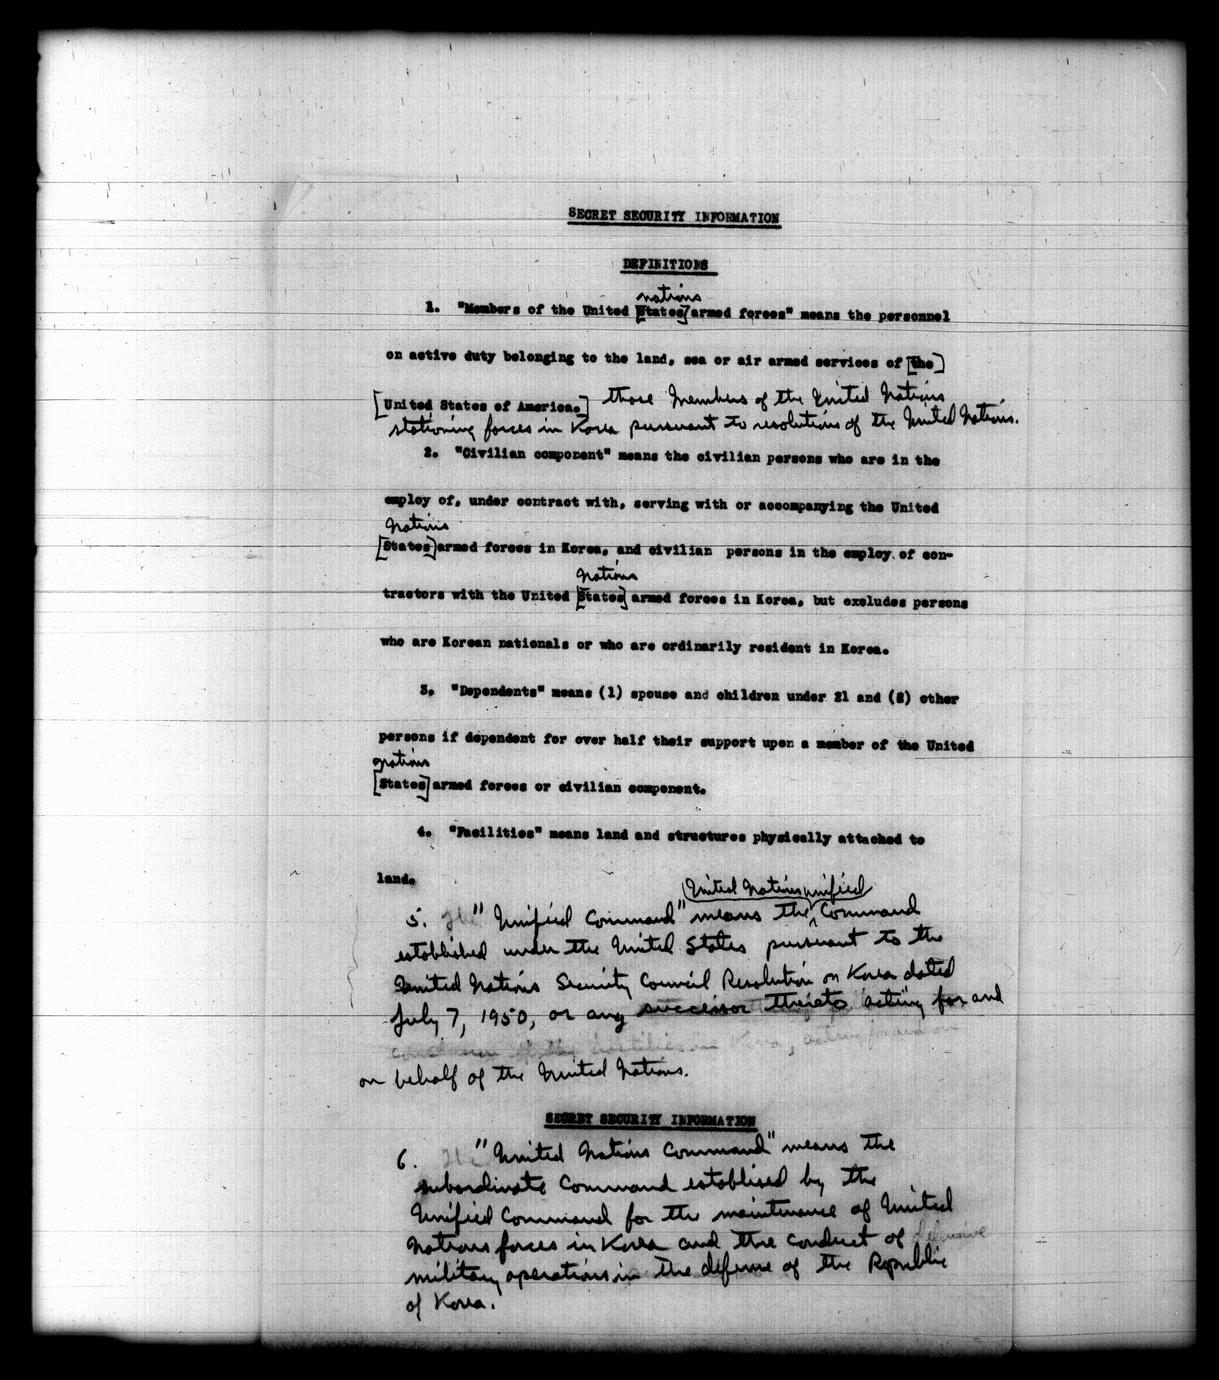 SECRET SECURITY INFORMATION
DEFINITIONS
nations
1. "Members of the United [States] armed forces" means the personnel
on active duty belonging to the land, sea or air armed services of [the]
[United States of America.] those Members of the United Nations
stationing forces in Korea pursuant to resolutions of the United Nations.
2. "Civilian component" means the civilian persons who are in the
employ of, under contract with, serving with or accompanying the United
Nations
[States] armed forces in Korea, and civilian persons in the employ of con-
Nations
tractors with the United [States] armed forces in Korea, but excludes persons
who are Korean nationals or who are ordinarily resident in Korea.
3. "Dependents" means (1) spouse and children under 21 and (2) other
persons if dependent for over half their support upon a member of the United
Nations
[States] armed forces or civilian component.
4. "Facilities" means land and structures physically attached to
land.
United Nations unified
5. "Unified Command" means the Command
established under the United States pursuant to the
United Nations Security Council Resolution on Korea dated
July 7, 1950, or any successor thereto acting for and
on behalf of the United Nations.
SECRET SECURITY INFORMATION
6. "United Nations Command" means the
subordinate Command establised by the
Unified Command for the maintenance of United
Nations forces in Korea and the conduct of defensive
military operations in the defense of the Republic
of Korea.